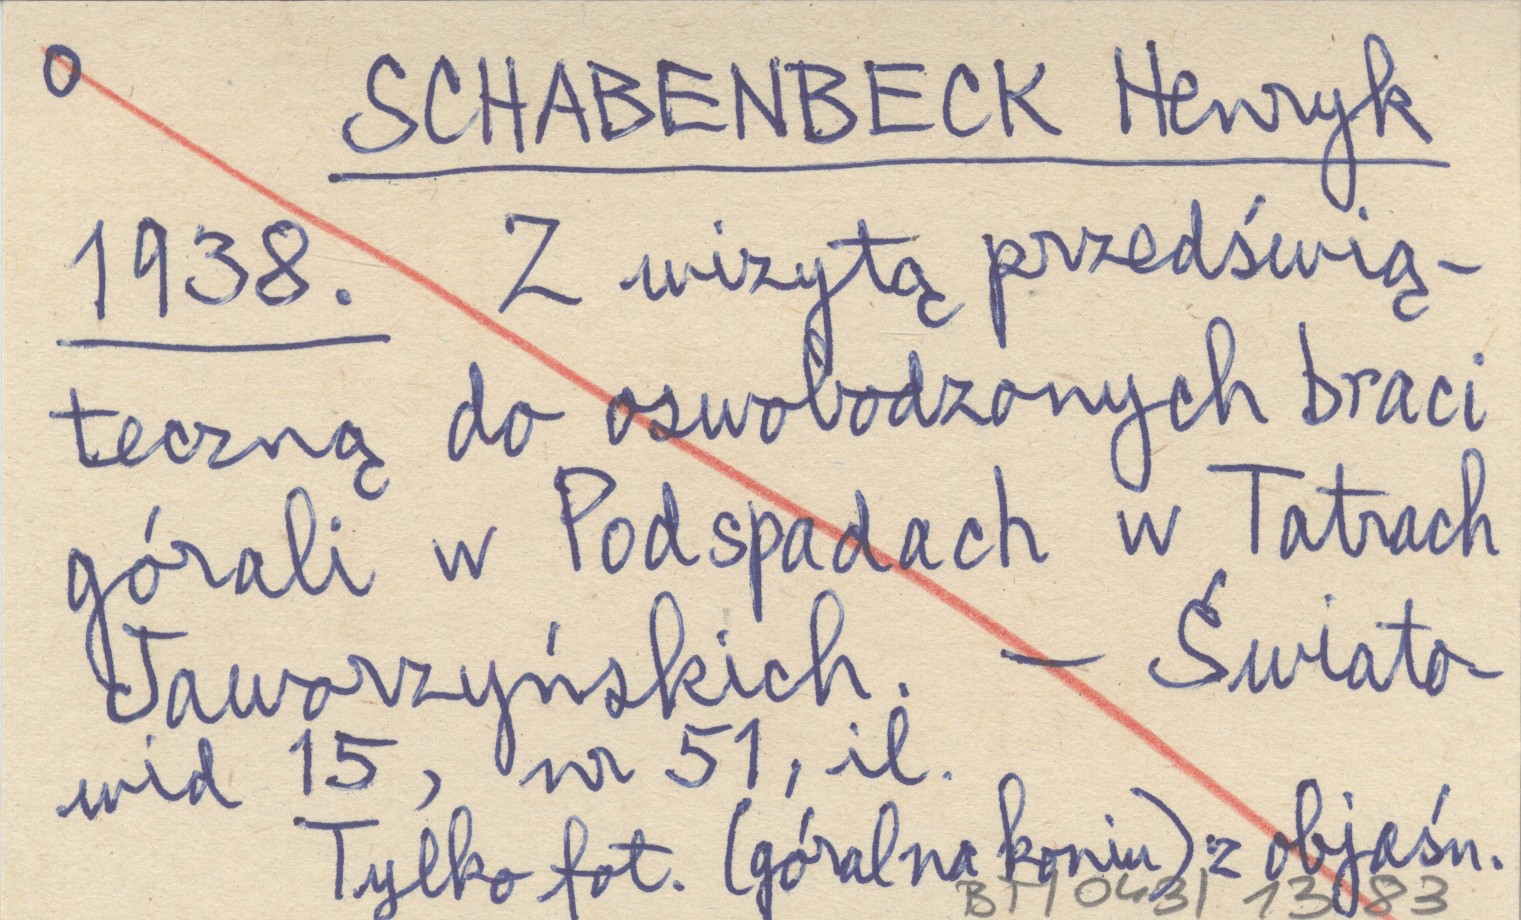 O SCHABENBECK Henryk
1938. Z wizytą przedświą-
teczną do oswobodzonych braci
górali w Podspadach w Tatrach
Jaworzyńskich. — Świato-
wid 15, nr 51, il.
Tylko fot. (góral na koniu) z objaśn.
BT/0431 13 83